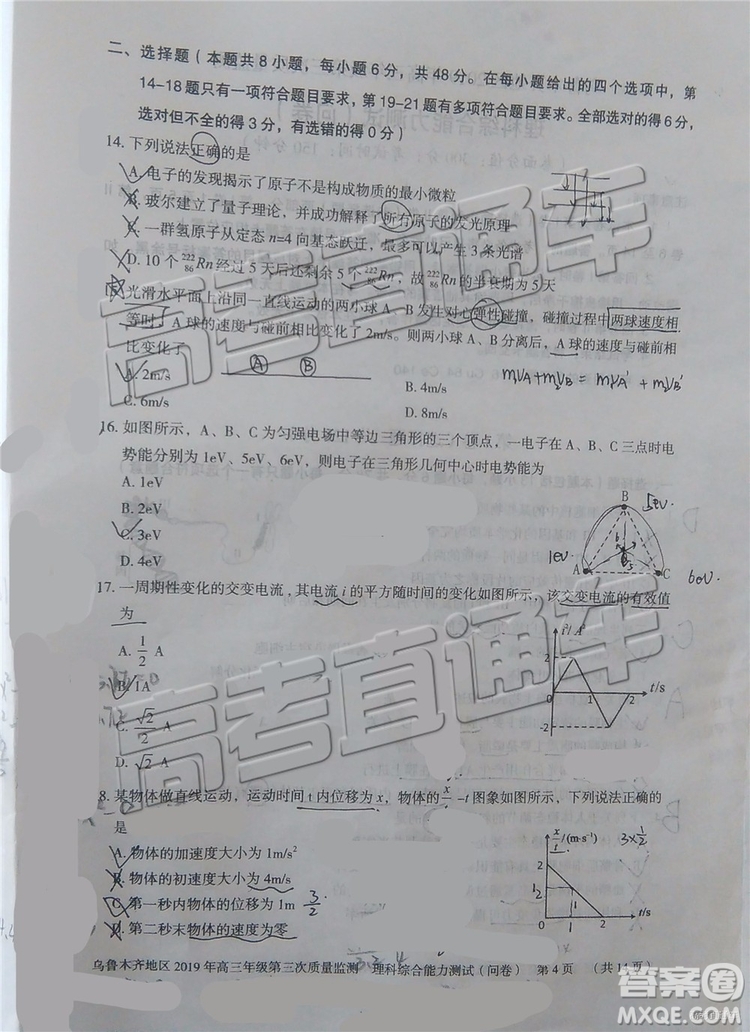 二、选择题（本题共8小题，每小题6分，共48分。在每小题给出的四个选项中，第
14-18题只有一项符合题目要求，第19-21题有多项符合题目要求。全部选对的得6分，
选对但不全的得3分，有选错的得0分）
14. 下列说法正确的是
A. 电子的发现揭示了原子不是构成物质的最小微粒
B. 玻尔建立了量子理论，并成功解释了所有原子的发光原理
C. 一群氢原子从定态 n=4 向基态跃迁，最多可以产生3条光谱
D. 10个 ²²²₈₆Rn 经过5天后还剩余5个 ²²²₈₆Rn，故 ²²²₈₆Rn 的半衰期为5天
光滑水平面上沿同一直线运动的两小球A、B发生对心弹性碰撞，碰撞过程中两球速度相
等时，A球的速度与碰前相比变化了2m/s。则两小球A、B分离后，A球的速度与碰前相
比变化了
A. 2m/s
B. 4m/s
C. 6m/s
D. 8m/s
A B
m₁VA+m₂VB = m₁VA'+m₂VB'
16. 如图所示，A、B、C为匀强电场中等边三角形的三个顶点，一电子在A、B、C三点时电
势能分别为1eV、5eV、6eV，则电子在三角形几何中心时电势能为
A. 1eV
B. 2eV
C. 3eV
D. 4eV
B
A
C
1eV
17. 一周期性变化的交变电流，其电流 i 的平方随时间的变化如图所示，该交变电流的有效值
为
A. 1/2 A
B. 1A
C. √2/2 A
D. √2 A
i²/A²
2
0
1
2
t/s
-2
8. 某物体做直线运动，运动时间 t 内位移为 x，物体的 x/t -t 图象如图所示，下列说法正确的
是
A. 物体的加速度大小为 1m/s²
B. 物体的初速度大小为 4m/s
C. 第一秒内物体的位移为 1m
D. 第二秒末物体的速度为零
3/2
3×1/2
x/t /(m·s⁻¹)
2
1
0
1
2
t/s
乌鲁木齐地区2019年高三年级第三次质量监测 理科综合能力测试（问卷） 第4页 （共14页）
高考直通车
高考直通车
答案圈